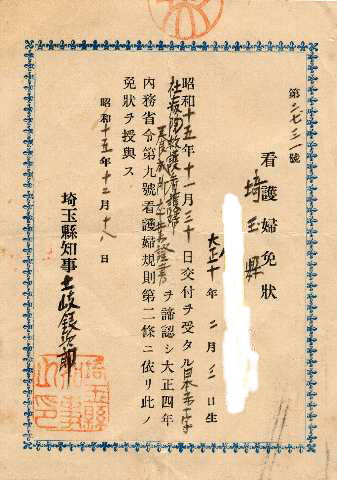 第二七三一號
看護婦免狀
埼玉縣
大正十年二月三一日生
昭和十五年十一月三十日交付ヲ受タル日本赤十字
社救護看護婦
ヲ諦認シ大正四年
內務省令第九號看護婦規則第二條ニ依リ此ノ
免狀ヲ授與ス
昭和十五年十二月十八日
埼玉縣知事土岐銀次郞
埼玉縣知事之印